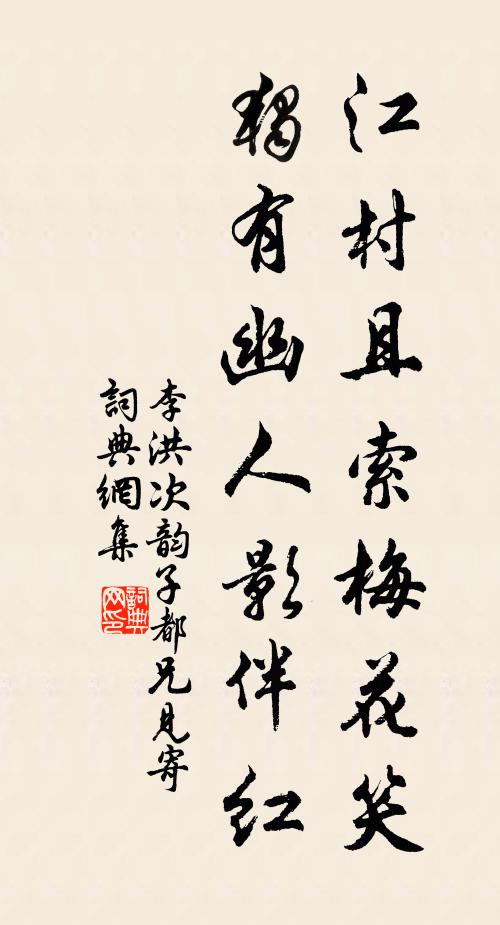 江村且索梅花笑
獨有幽人影伴紅
李洪次韵子都兄見寄
詞典網集
詞典网印